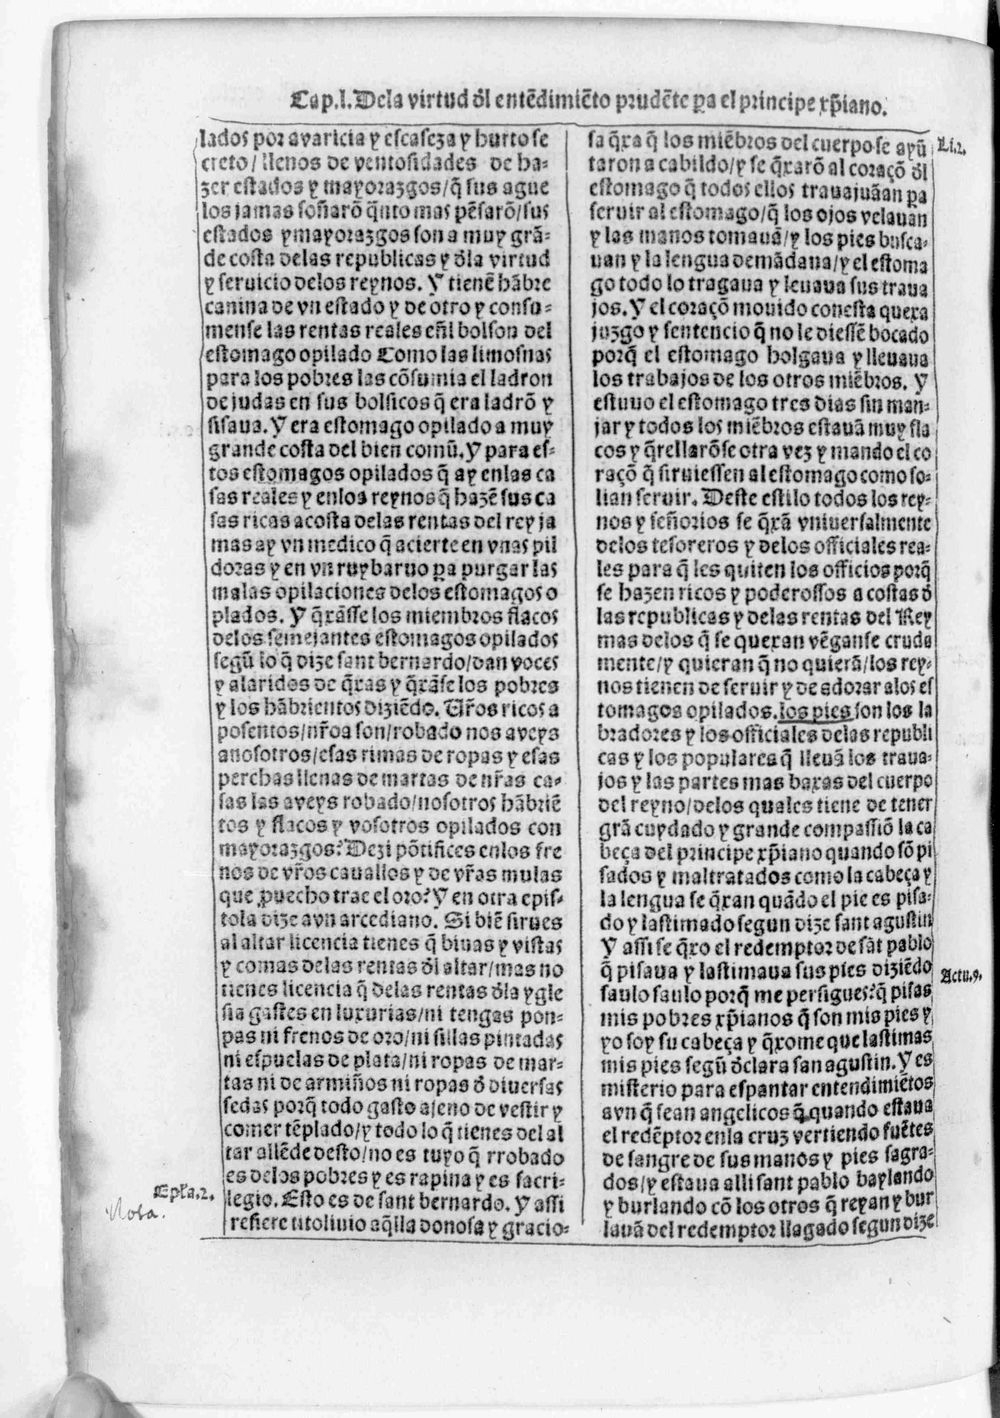 Cap.I. Dela virtud ðl entẽdimiẽto prudẽte ꝑa el principe xp̃iano.
lados por avaricia y escaseza y hurto se
creto/llenos de ventosidades de ha-
zer estados y mayorazgos/q̃ sus ague
los jamas soñarõ q̃nto mas pẽsarõ/sus
estados y mayorazgos son a muy grã-
de costa delas republicas y ðla virtud
y seruicio delos reynos. Y tienẽ hãbre
canina de vn estado y de otro y consu-
mense las rentas reales eñl bolson del
estomago opilado Como las limosnas
para los pobres las cõsumia el ladron
de judas en sus bolsicos q̃ era ladrõ y
sisaua. Y era estomago opilado a muy
grande costa del bien comũ. Y para es-
tos estomagos opilados q̃ ay enlas ca
sas reales y enlos reynos q̃ hazẽ sus ca
sas ricas acosta delas rentas del rey ja
mas ay vn medico q̃ acierte en vnas pil
doras y en vn ruybaruo ꝑa purgar las
malas opilaciones delos estomagos o
plados. Y q̃xãsse los miembros flacos
delos semejantes estomagos opilados
segũ lo q̃ dize sant bernardo/dan voces
y alaridos de q̃xas y q̃xãse los pobres
y los hãbrientos diziẽdo. Ur̃os ricos a
posentos/nr̃oa son/robado nos aveys
anosotros/esas rimas de ropas y esas
perchas llenas de martas de nr̃as ca-
sas las aveys robado/nosotros hãbriẽ
tos y flacos y vosotros opilados con
mayorazgos? Dezi põtifices enlos fre
nos de vr̃os cauallos y de vr̃as mulas
que ꝓuecho trae el oro? Y en otra epis-
tola dize avn arcediano. Si biẽ sirues
al altar licencia tienes q̃ biuas y vistas
y comas delas rentas ðl altar/mas no
tienes licencia q̃ delas rentas ðla ygle
sia gastes en luxurias/ni tengas pon-
pas ni frenos de oro/ni sillas pintadas
ni espuelas de plata/ni ropas de mar-
tas ni de armiños ni ropas ð diuersas
sedas porq̃ todo gasto ajeno de vestir y
comer tẽplado/y todo lo q̃ tienes del al
tar allẽde desto/no es tuyo q̃ rrobado
es delos pobres y es rapina y es sacri-
Epl̃a.2.
legio. Esto es de sant bernardo. Y assi
Nota.
refiere titoliuio aq̃lla donosa y gracio-
sa q̃xa q̃ los miẽbros del cuerpo se ayũ
Li.2.
taron a cabildo/y se q̃xarõ al coraçõ ðl
estomago q̃ todos ellos trauajuãan ꝑa
seruir al estomago/q̃ los ojos velauan
y las manos tomauã/y los pies busca-
uan y la lengua demãdaua/y el estoma
go todo lo tragaua y leuaua sus traua
jos. Y el coraçõ mouido conesta quexa
juzgo y sentencio q̃ no le diessẽ bocado
porq̃ el estomago holgaua y lleuaua
los trabajos de los otros miẽbros. Y
estuuo el estomago tres dias sin man-
jar y todos los miẽbros estauã muy fla
cos y q̃rellarõse otra vez y mando el co
raçõ q̃ siruiessen al estomago como so-
lian seruir. Deste estilo todos los rey-
nos y señorios se q̃xã vniuersalmente
delos tesoreros y delos officiales rea-
les para q̃ les quiten los officios porq̃
se hazen ricos y poderossos a costas ð
las republicas y delas rentas del Rey
mas delos q̃ se quexan vẽganse cruda
mente/y quieran q̃ no quierã/los rey-
nos tienen de seruir y de adorar alos es
tomagos opilados. los pies son los la
bradores y los officiales delas republi
cas y los populares q̃ lleuã los traua-
jos y las partes mas baxas del cuerpo
del reyno/delos quales tiene de tener
grã cuydado y grande compassiõ la ca
beça del principe xp̃iano quando sõ pi
sados y maltratados como la cabeça y
la lengua se q̃xan quãdo el pie es pisa-
do y lastimado segun dize sant agustin
Y assi se q̃xo el redemptor de sãt pablo
q̃ pisaua y lastimaua sus pies diziẽdo
Actu.9.
saulo saulo porq̃ me persigues? q̃ pisas
mis pobres xp̃ianos q̃ son mis pies y
yo soy su cabeça y q̃xome que lastimas
mis pies segũ ðclara san agustin. Y es
misterio para espantar entendimiẽtos
avn q̃ sean angelicos q̃ quando estaua
el redẽptor enla cruz vertiendo fuẽtes
de sangre de sus manos y pies sagra-
dos/y estaua alli sant pablo baylando
y burlando cõ los otros q̃ reyan y bur
lauã del redemptor llagado segun dize